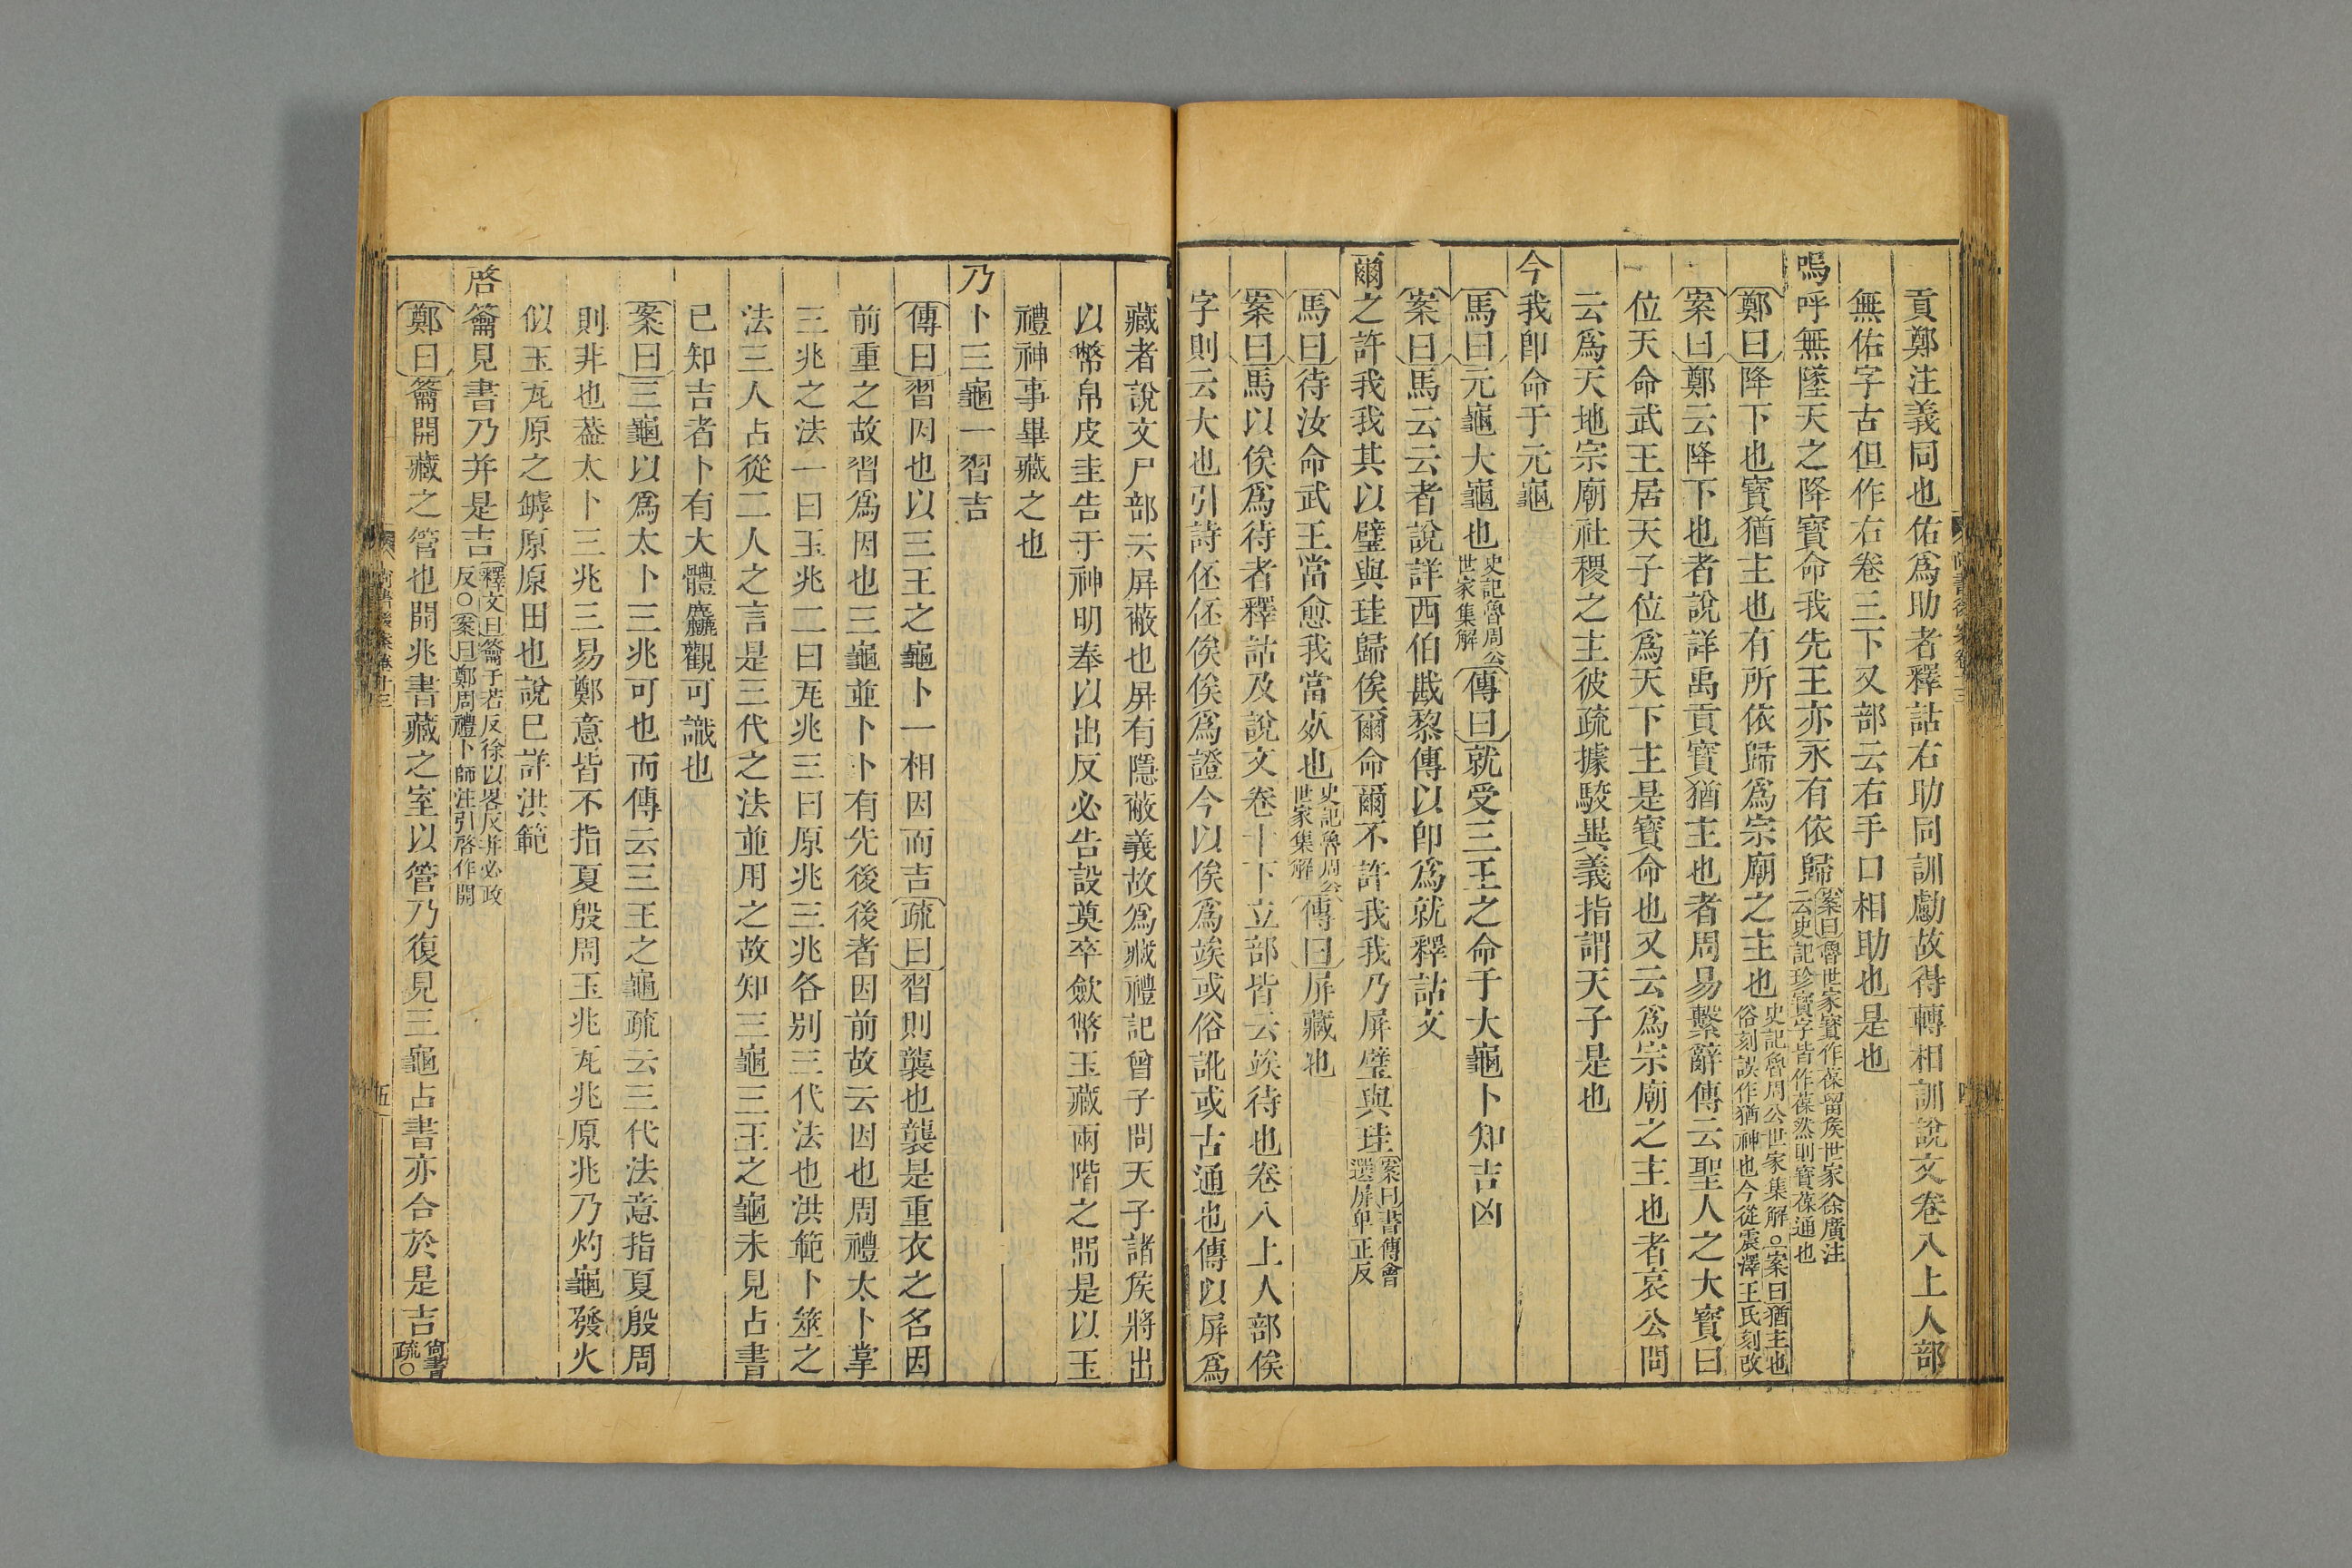 貢鄭注義同也佑爲助者釋詁右助同訓勴故得轉相訓說文卷八上人部
無佑字古但作右卷三下又部云右手口相助也是也
嗚呼無墜天之降寶命我先王亦永有依歸案曰魯世家寶作葆留矦世家徐廣注
云史記珍寶字皆作葆然則寶葆通也
鄭曰降下也寶猶主也有所依歸爲宗廟之主也史記魯周公世家集解○案曰猶主也
俗刻誤作猶神也今從震澤王氏刻改
案曰鄭云降下也者說詳禹貢寶猶主也者周易繫辭傳云聖人之大寶曰
位天命武王居天子位爲天下主是寶命也又云爲宗廟之主也者哀公問
云爲天地宗廟社稷之主彼疏據駿異義指謂天子是也
今我卽命于元龜
馬曰元龜大龜也史記魯周公
世家集解傳曰就受三王之命于大龜卜知吉凶
案曰馬云云者說詳西伯戡黎傳以卽爲就釋詁文
爾之許我我其以璧與珪歸俟爾命爾不許我我乃屏璧與珪案曰書傳會
選屏卑正反
馬曰待汝命武王當愈我當死也史記魯周公
世家集解傳曰屏藏也
案曰馬以俟爲待者釋詁及說文卷十下立部皆云竢待也卷八上人部俟
字則云大也引詩伾伾俟俟爲證今以俟爲竢或俗訛或古通也傳以屏爲
藏者說文尸部云屏蔽也屏有隱蔽義故爲藏禮記曾子問天子諸矦將出
以幣帛皮圭告于神明奉以出反必告設奠卒歛幣玉藏兩階之閒是以玉
禮神事畢藏之也
乃卜三龜一習吉
傳曰習因也以三王之龜卜一相因而吉疏曰習則襲也襲是重衣之名因
前重之故習爲因也三龜並卜卜有先後後者因前故云因也周禮太卜掌
三兆之法一曰玉兆二曰瓦兆三曰原兆三兆各别三代法也洪範卜筮之
法三人占從二人之言是三代之法並用之故知三龜三王之龜未見占書
已知吉者卜有大體麤觀可識也
案曰三龜以爲太卜三兆可也而傳云三王之龜疏云三代法意指夏殷周
則非也葢太卜三兆三易鄭意皆不指夏殷周玉兆瓦兆原兆乃灼龜發火
似玉瓦原之罅原原田也說已詳洪範
啓籥見書乃并是吉釋文曰籥予若反徐以畧反并必政
反○案曰鄭周禮卜師注引啓作開
鄭曰籥開藏之管也開兆書藏之室以管乃復見三龜占書亦合於是吉尙書
疏○